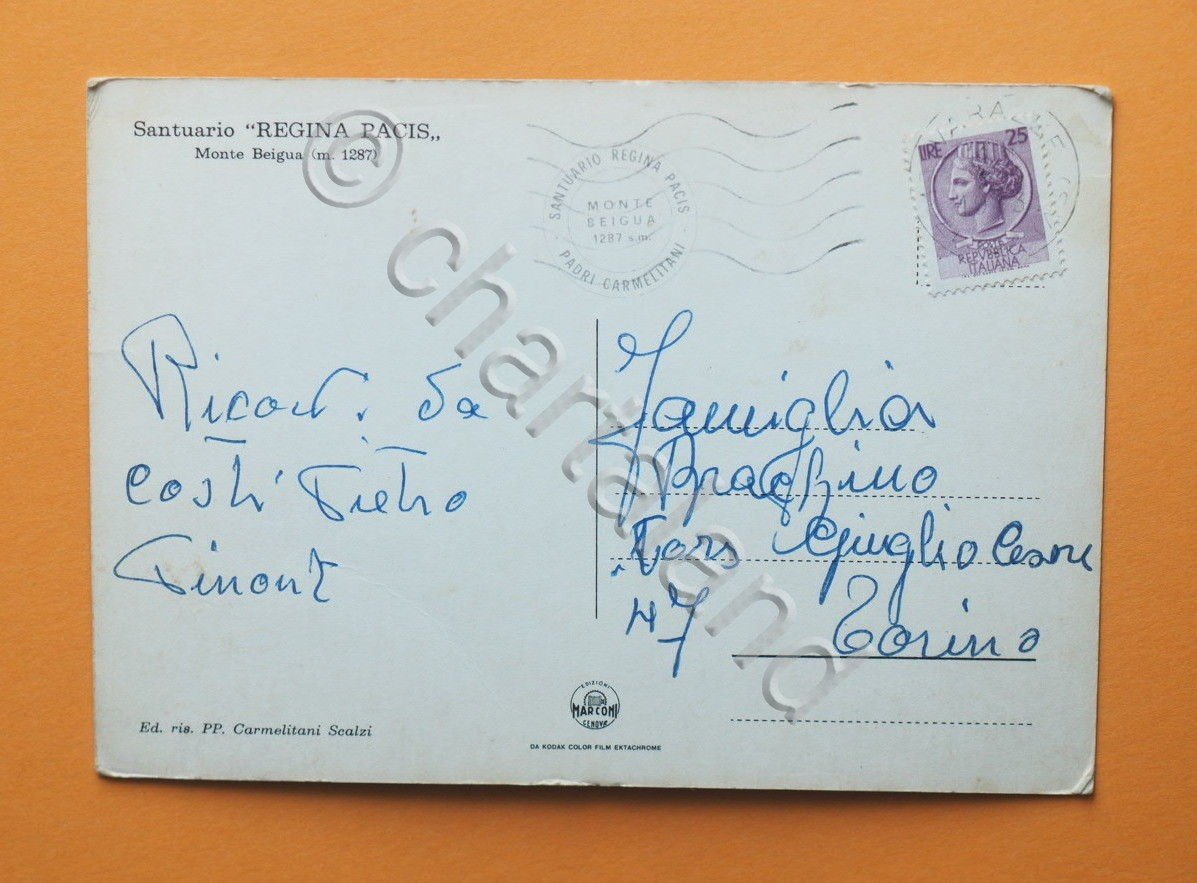 Santuario "REGINA PACIS„
Monte Beigua (m. 1287)
SANTUARIO REGINA PACIS
MONTE
BEIGUA
1287 s.m.
PADRI CARMELITANI
LIRE 25
REPVBBLICA
ITALIANA
© chartaland
Ricordi da
Costì Pietro
Famiglia
Giuglio Cesare
47 Torino
EDIZIONI
MARCONI
GENOVA
Ed. ris. PP. Carmelitani Scalzi
DA KODAK COLOR FILM EKTACHROME